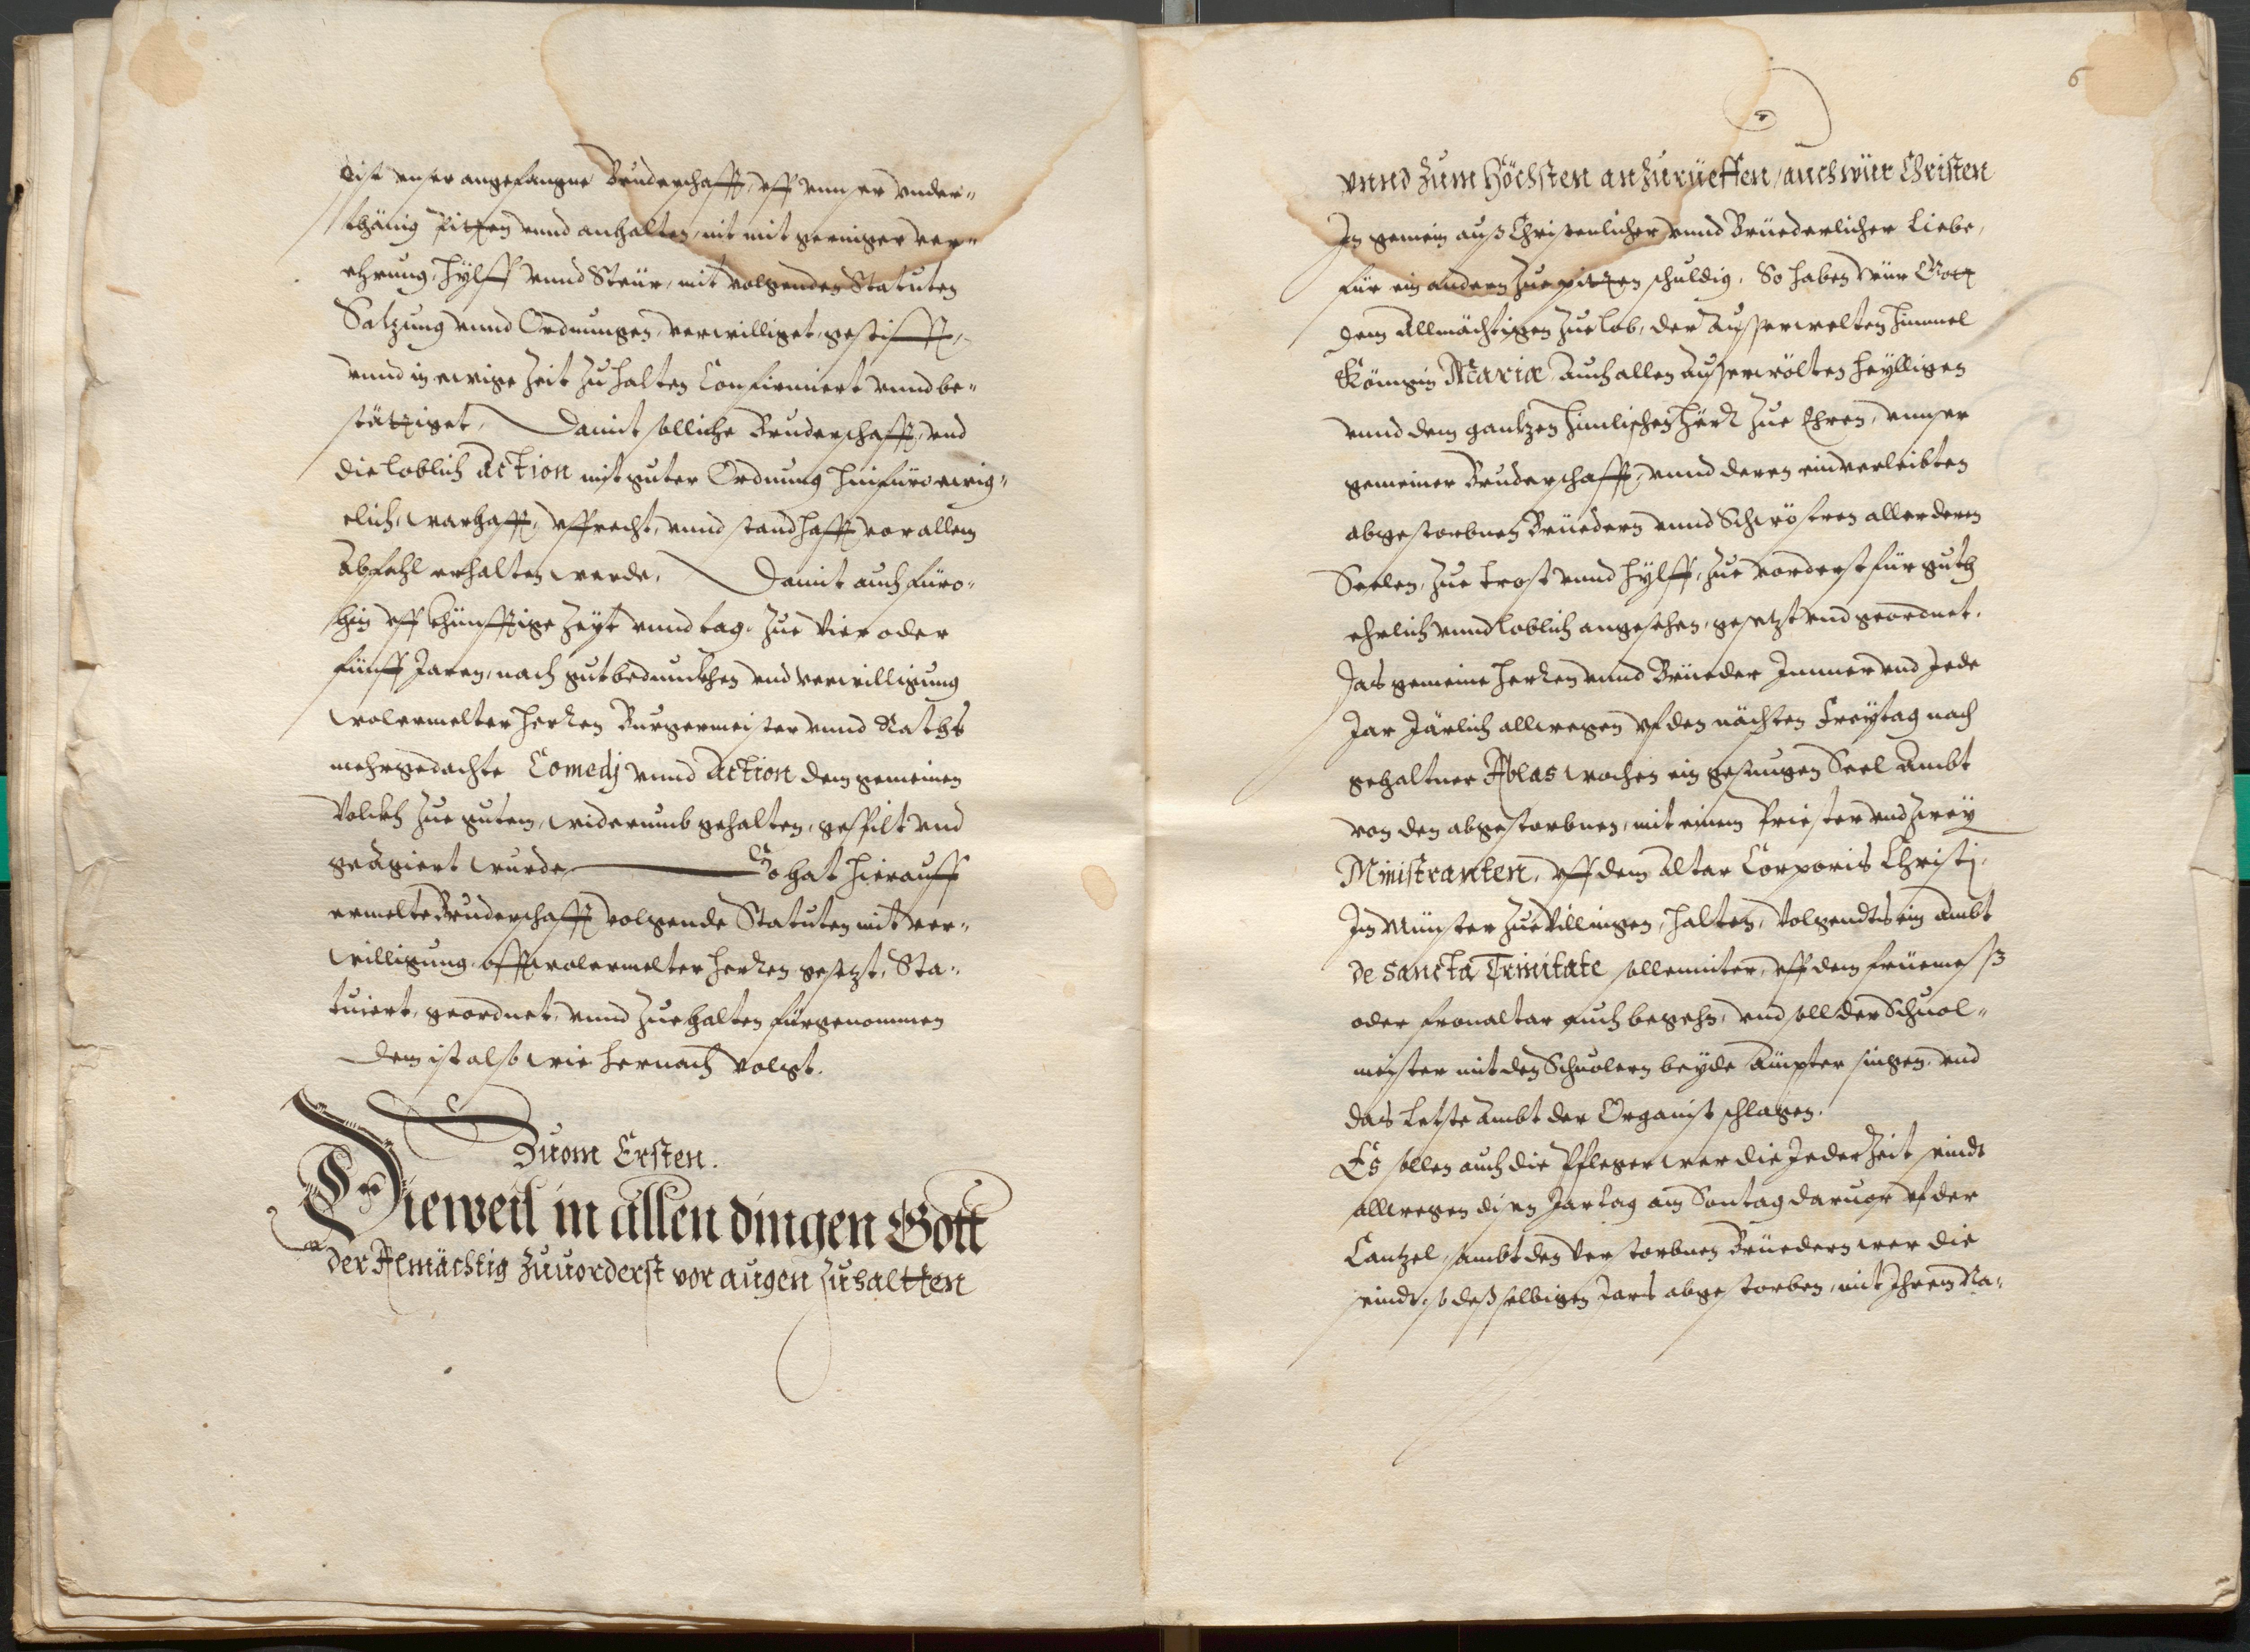 dise unser angefangne Bruderschafft, uff unnser under-
thänig pitten unnd anhalten, nit mit geringer ver-
ehrung, Hylff unnd Steür, mit volgenden Statuten
Satzung unnd Ordnungen, verwilliget, gestifft,
unnd in ewige Zeit zu halten Confirmiert unnd be-
stättiget, Damit solliche Bruderschafft, und
die loblich Action mit guter Ordnung hinfüro ewig-
elich, warhafft, uffrecht, unnd standhafft vor allem
Abfahl erhalten werde, Damit auch füro-
hin uff khünfftige Zeyt unnd tag, zue vier oder
fünff Jaren, nach gutbedunckhen und verwilligung
wolermelter Herren Burgermeister unnd Raths
mehrgedachte Comedj unnd Action dem gemeinen
Volckh zue gutem, widerumb gehalten, gespilt und
geagiert wurde So hat hierauff
ermelte Bruderschafft volgende Statuten mit ver-
willigung offtwolermelter Herren gesetzt, Sta-
tuiert, geordnet, unnd zue halten fürgenommen
Dem ist also wie hernach volgt.
Zuom Ersten.
Dieweil in allen dingen Gott
der Almächtig zuuorderst vor augen zuhaltten
6
vnnd zum Höchsten anzurüeffen / auch wür Christen
In gemein auß Christenlicher unnd Brüederlicher Liebe,
für ein andern zue pitten schuldig, So haben wür Gott
dem Allmächtigen zue lob, der Ausserwelten Himmel
Königin Mariæ, auch allen ausserwölten Heylligen
unnd dem gantzen himlischen Hör zue Ehren, unnser
gemeiner Bruderschafft, unnd deren einverleibten
abgestorbnen Brüedern unnd Schwöstren aller deren
Seelen, zue trost unnd Hylff, zue vorderst für guth
ehrlich unnd loblich angesehen, gesetzt und geordnet.
Das gemeine Herren unnd Brüeder Immer und Jede
Jar Järlich allwegen uf den nächsten Freytag nach
gehaltner Ablas wochen ein gesungen Seel Ambt
von den abgestorbnen, mit einem Priester und zwey
Ministranten, uff dem Altar Corporis Christj,
In Münster zue Villingen, halten, Volgendts ein Ambt
de Sancta Trinitate sollenniter, uff dem früemeß
oder fronaltar auch begehn, und soll der Schuol-
meister mit den Schuolern beyde Ämpter singen, und
das Letste Ambt der Organist schlagen.
Es sollen auch die Pfleger wer die Jeder Zeit seindt
allwegen disen Jartag am Sontag daruor uf der
Cantzel, sambt den verstorbnen Brüedern wer die
seindt, so deß selbigen Jars abgestorben, mit Ihrem Na-